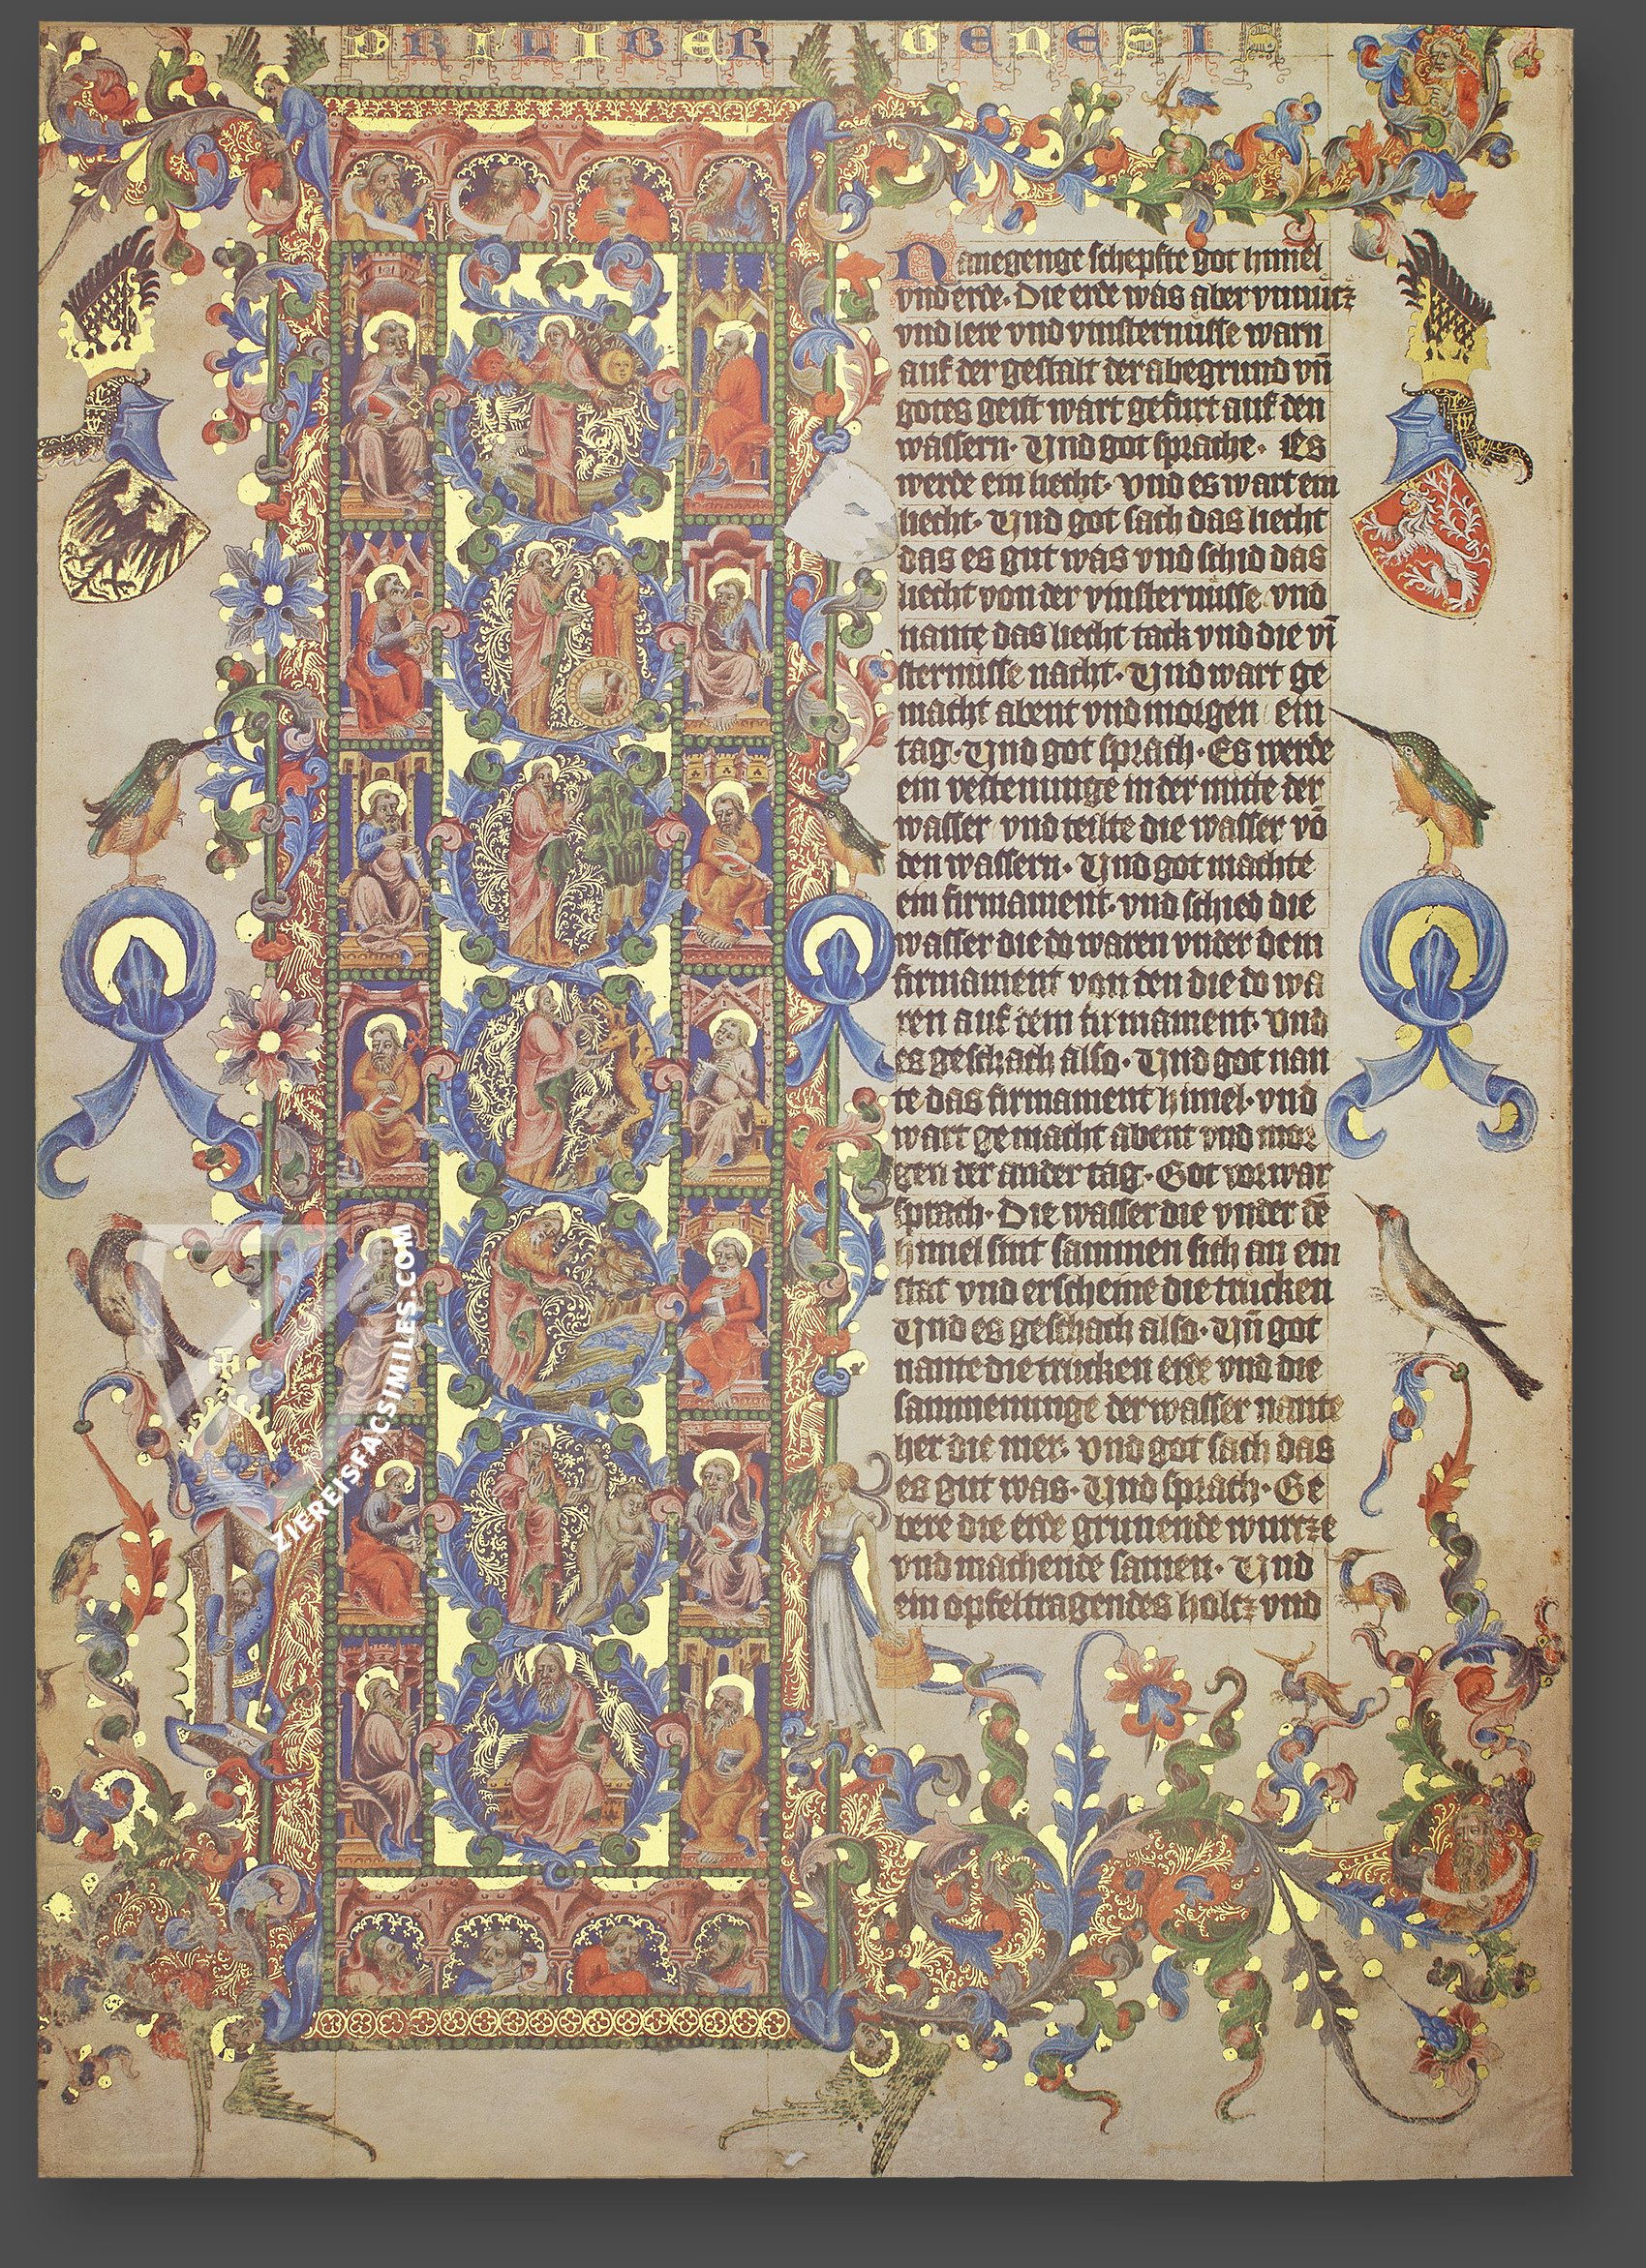 DER LIBER GENESIS
Nanegenge schepfte got himel
vnd erde. Die erde was aber vnnutz
vnd lere vnd vinsternusse warn
auf der gestalt der abegrund vn̄
gotes geist wart gefurt auf den
wassern. Und got sprache. Es
werde ein liecht. vnd es wart ein
liecht. Und got sach das liecht
das es gut was vnd schid das
liecht von der vinsternusse vnd
nante das liecht tack vnd die vī
sternusse nacht. Und wart ge
macht abent vnd morgen ein
tag. Und got sprach. Es werde
ein vestenunge in der mitte der
wasser vnd teilte die wasser vō
den wassern. Und got machte
ein firmament. vnd schied die
wasser die do waren vnter dem
firmament von den die do wa
ren auf dem firmament. vnd
es geschach also. Und got nan
te das firmament himel. vnd
wart gemacht abent vnd mor
gen der ander tag. Got vorwar
sprach. Die wasser die vnder dē
himel sint sammen sich an ein
stat vnd erscheine die trucken
Und es geschach also. Vn̄ got
nante die trucken erde vnd die
sammenunge der wasser nante
her die mer. vnd got sach das
es gut was. Und sprach. Ge
bere die erde grunende wurtze
vnd machende samen. Und
ein opfeltragendes holtz vnd
ZIEREISFACSIMILES.COM